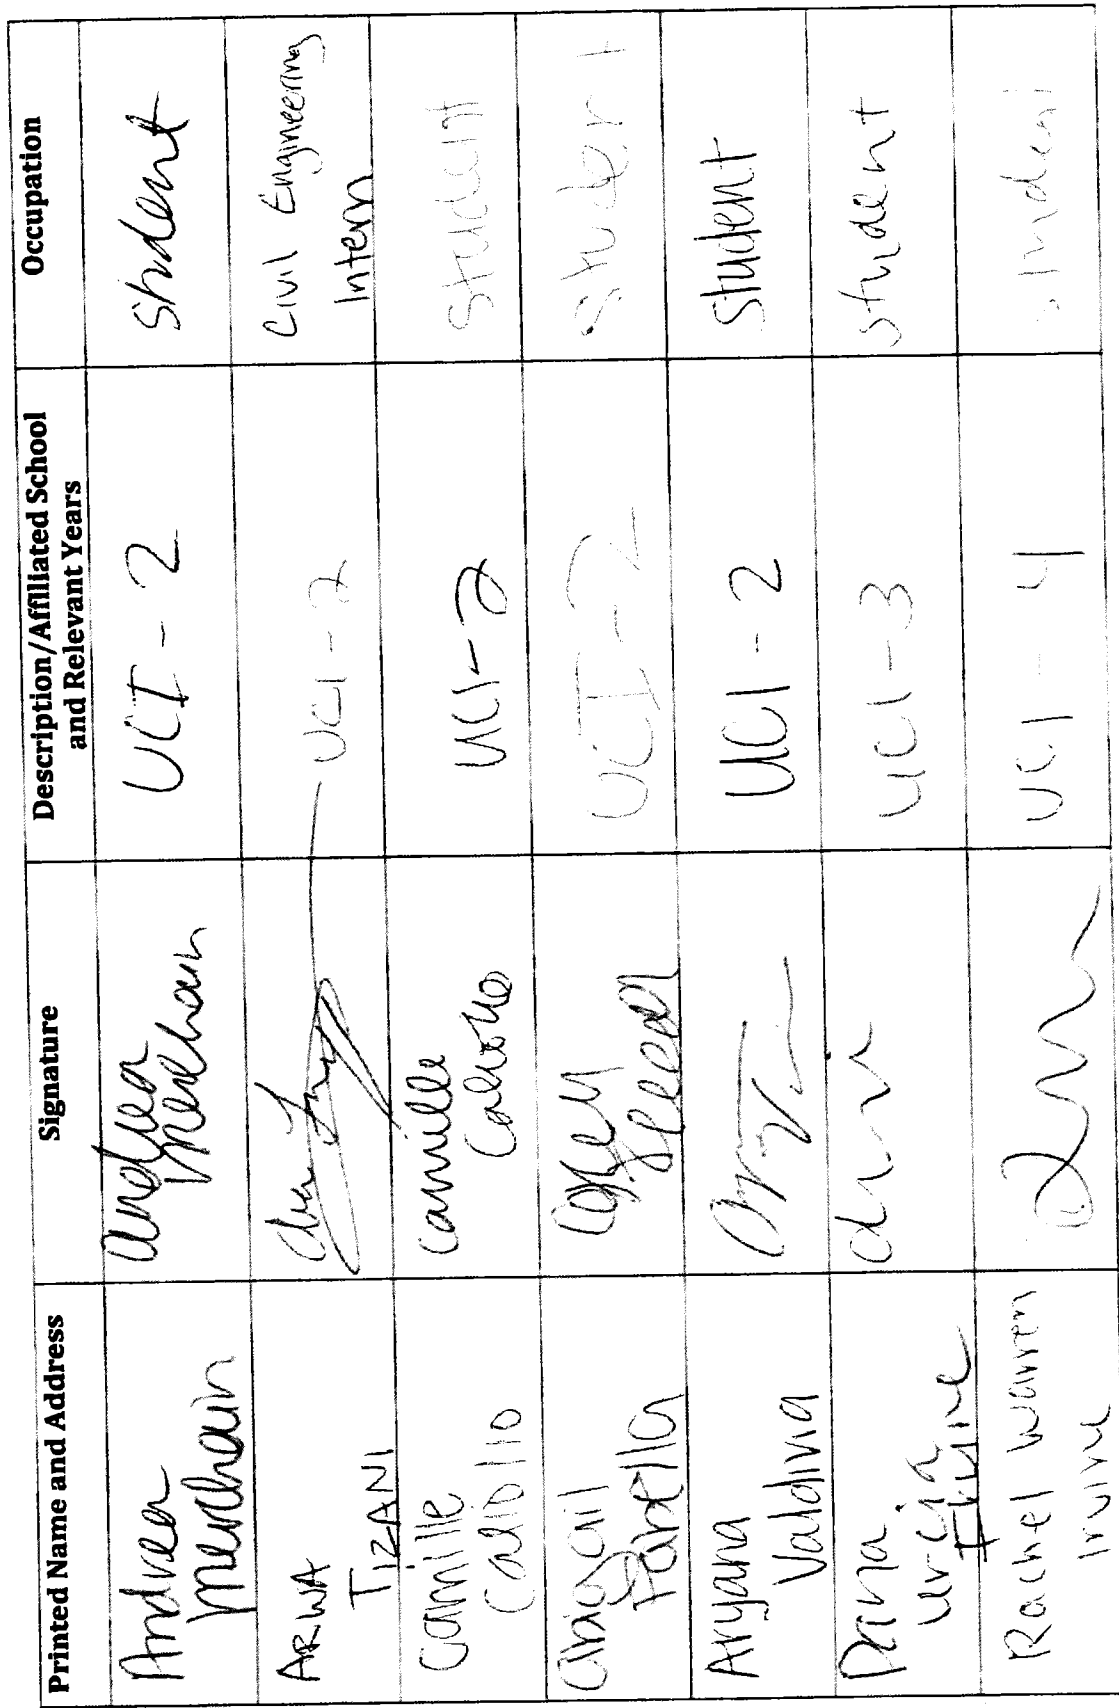 Printed Name and Address Signature Description/Affiliated School and Relevant Years Occupation
Andrea Merchain Andrea Merchain UCI - 2 Student
ARWA TIZANI UCI - 2 Civil Engineering Intern
Camille Camille UCI-2 Student
Abigail UCI-2 Student
Aryana Valdivia UCI - 2 Student
Dana Urcia Irvine UCI-3 Student
Rachel Warren Irvine UCI - 4 Student